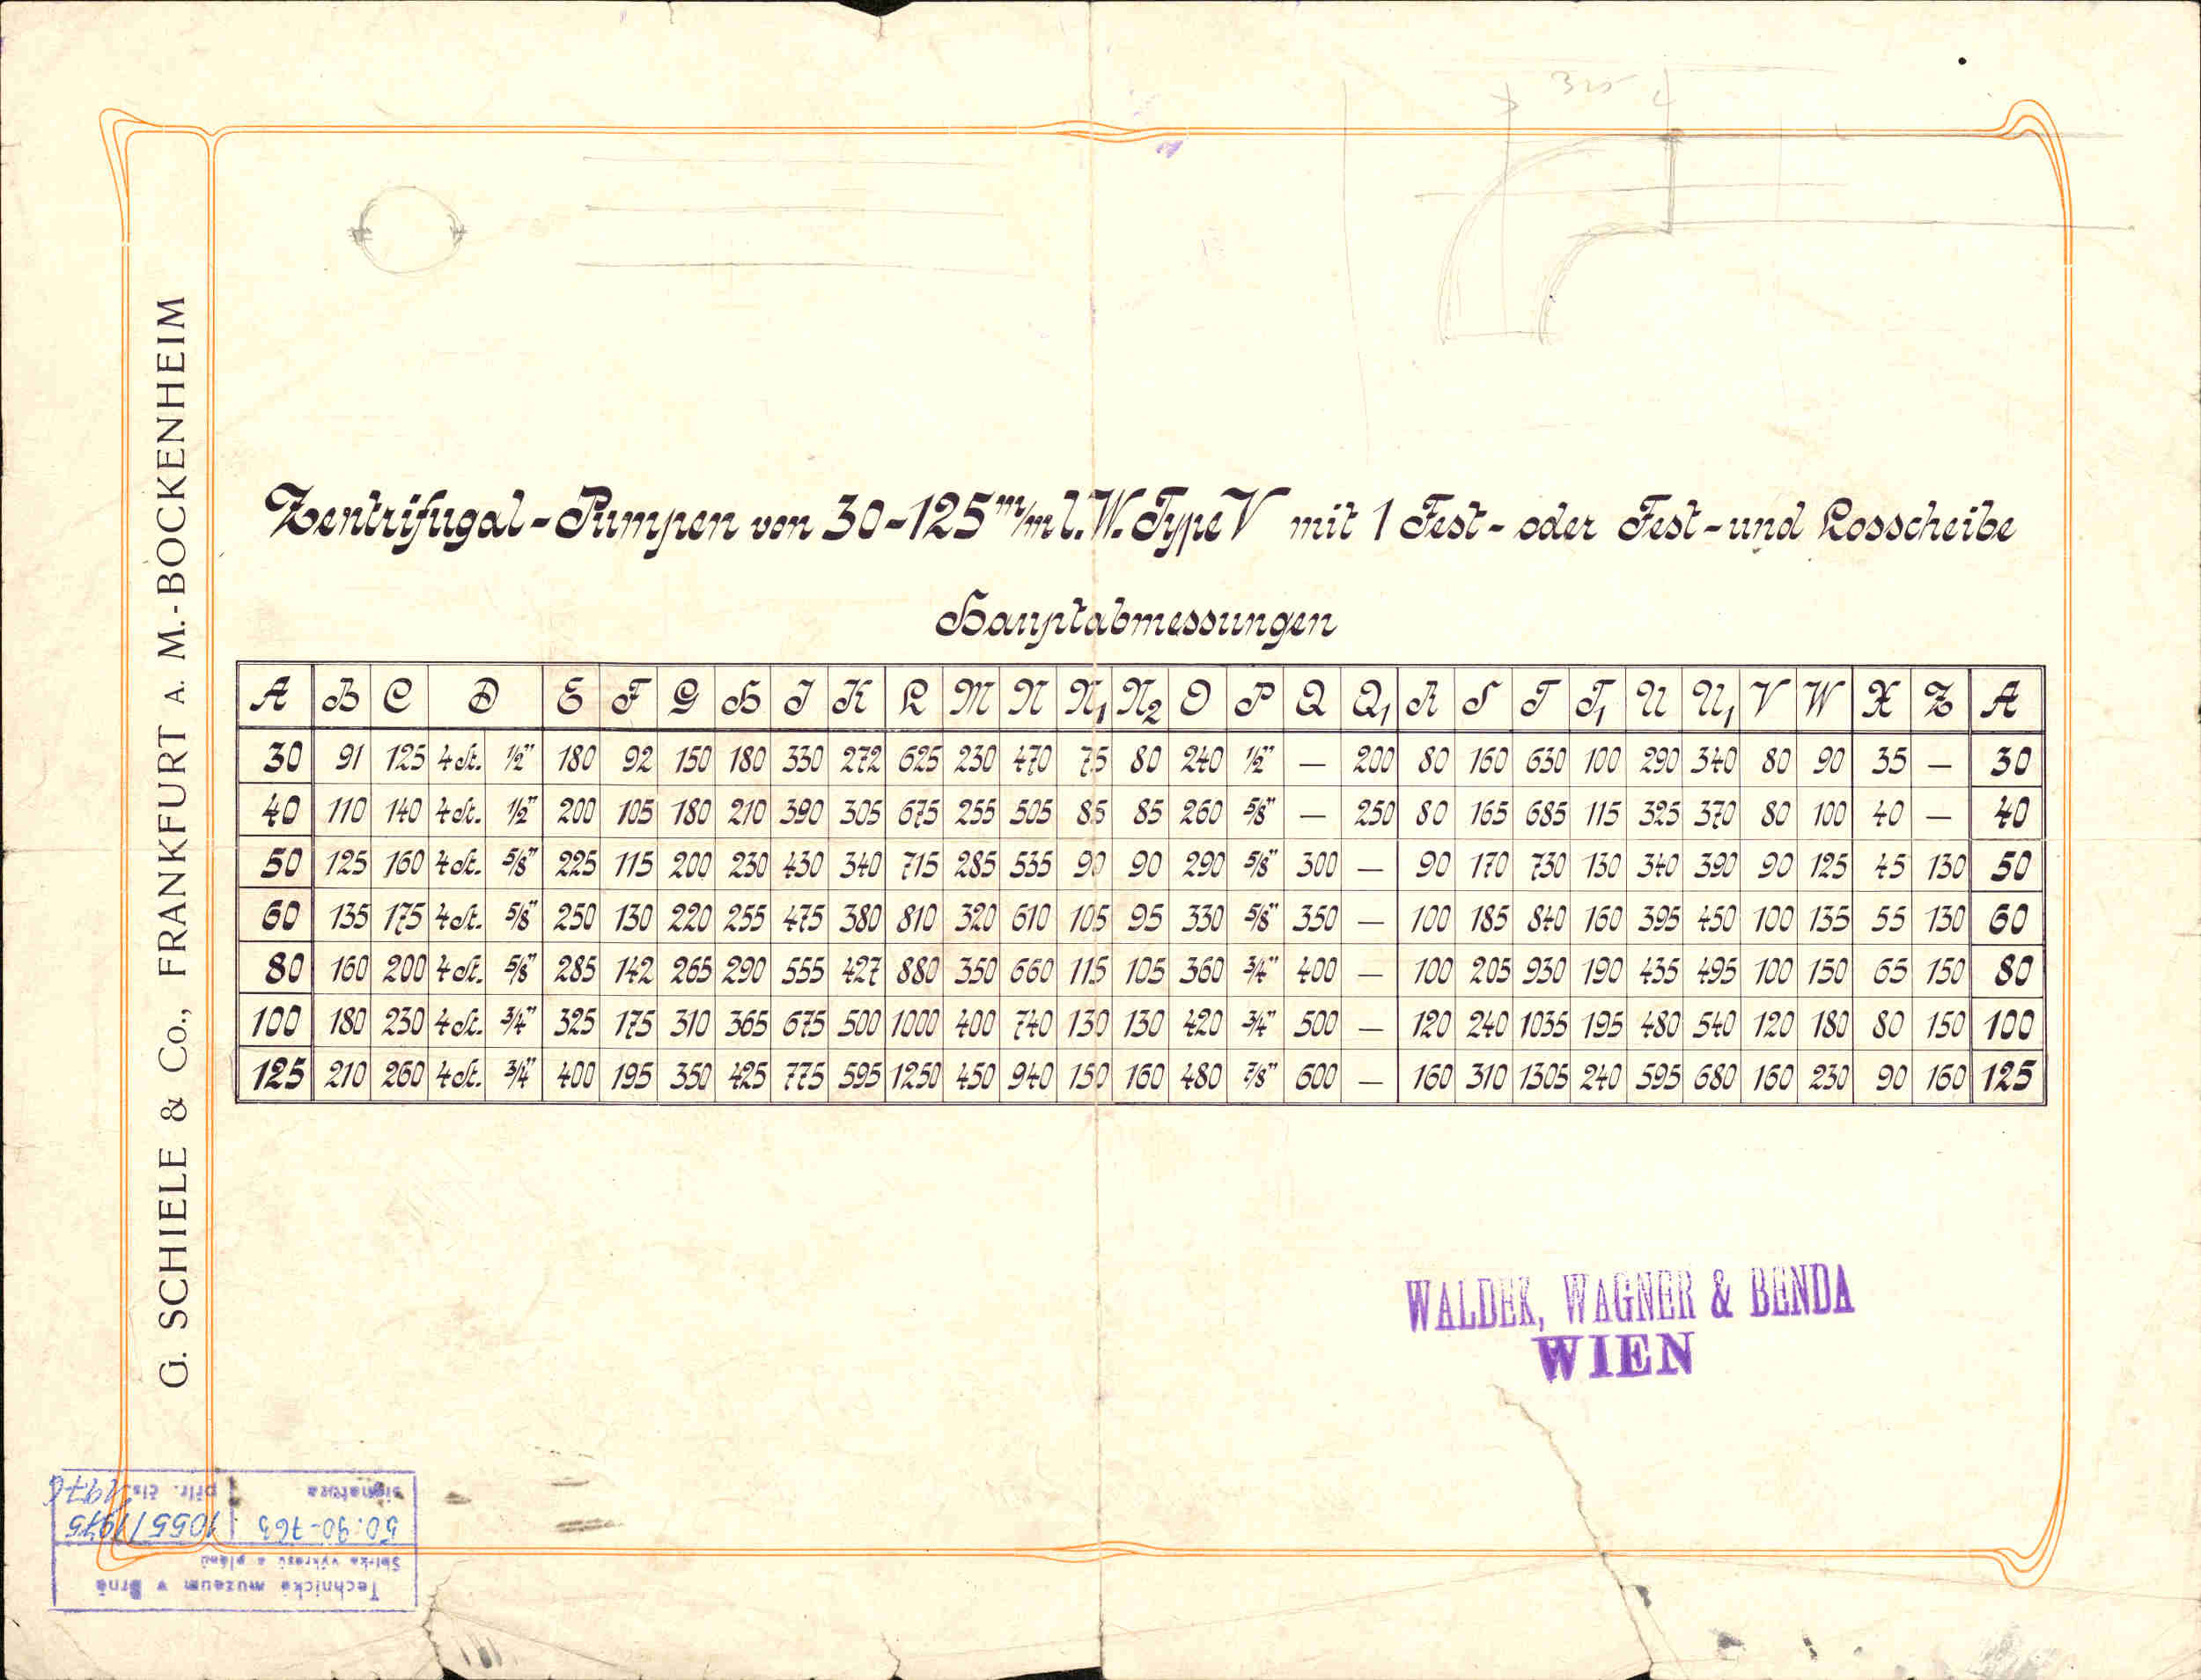 325
G. SCHIELE & Co., FRANKFURT A. M.-BOCKENHEIM
Zentrifugal-Pumpen von 30-125 m/m l. W. Type V mit 1 Fest- oder Fest- und Losscheibe
Hauptabmessungen
A B C D E F G H I K L M N N₁ N₂ O P Q Q₁ R S T T₁ U U₁ V W X Z A
30 91 125 4 St. 1/2" 180 92 150 180 330 272 625 230 470 75 80 240 1/2" — 200 80 160 630 100 290 340 80 90 35 — 30
40 110 140 4 St. 1/2" 200 105 180 210 390 305 675 255 505 85 85 260 5/8" — 250 80 165 685 115 325 370 80 100 40 — 40
50 125 160 4 St. 5/8" 225 115 200 230 430 340 715 285 535 90 90 290 5/8" 300 — 90 170 730 130 340 390 90 125 45 130 50
60 135 175 4 St. 5/8" 250 130 220 255 475 380 810 320 610 105 95 330 5/8" 350 — 100 185 840 160 395 450 100 135 55 130 60
80 160 200 4 St. 5/8" 285 142 265 290 555 427 880 350 660 115 105 360 3/4" 400 — 100 205 930 190 435 495 100 150 65 150 80
100 180 230 4 St. 3/4" 325 175 310 365 675 500 1000 400 740 130 130 420 3/4" 500 — 120 240 1035 195 480 540 120 180 80 150 100
125 210 260 4 St. 3/4" 400 195 350 425 775 595 1250 450 940 150 160 480 7/8" 600 — 160 310 1305 240 595 680 160 230 90 160 125
WALDEK, WAGNER & BENDA
WIEN
Technické muzeum v Brně
Sbírka výkresů a plánů
50.90-763 1055/1975
signatura přír. čís. 1976